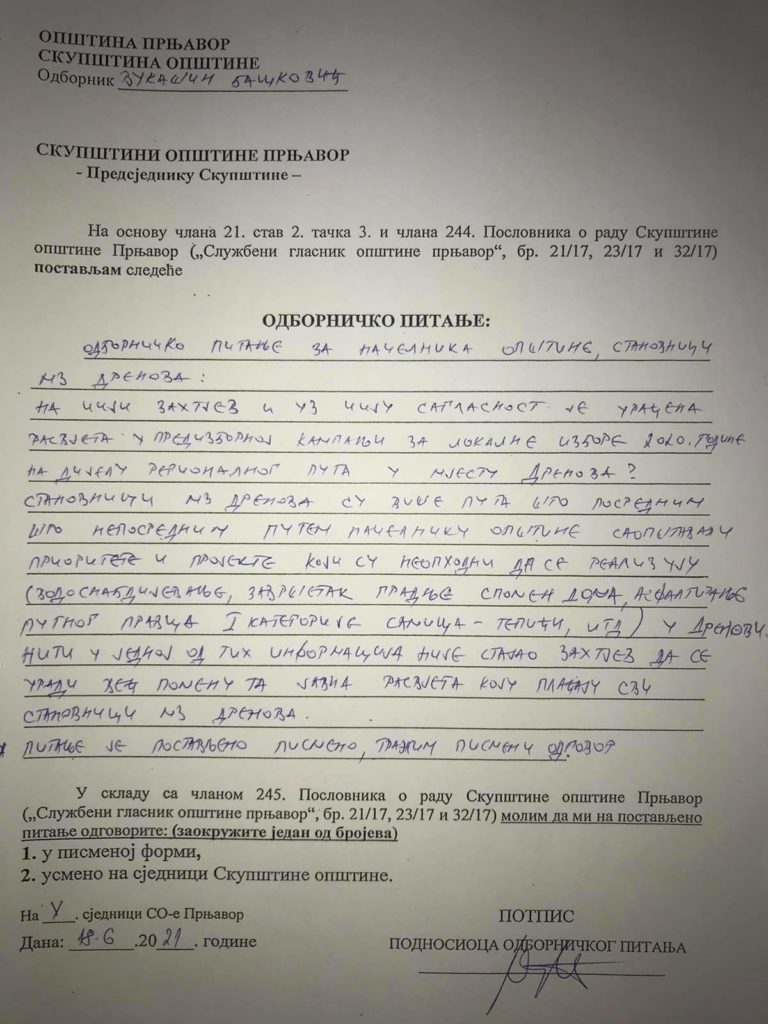 ОПШТИНА ПРЊАВОР
СКУПШТИНА ОПШТИНЕ
Одборник ВУКАШИН БАШКОВИЋ
СКУПШТИНИ ОПШТИНЕ ПРЊАВОР
- Предсједнику Скупштине –
На основу члана 21. став 2. тачка 3. и члана 244. Пословника о раду Скупштине
општине Прњавор („Службени гласник општине прњавор“, бр. 21/17, 23/17 и 32/17)
постављам следеће
ОДБОРНИЧКО ПИТАЊЕ:
ОДБОРНИЧКО ПИТАЊЕ ЗА НАЧЕЛНИКА ОПШТИНЕ, СТАНОВНИЦИ
МЗ ДРЕНОВА :
НА ЧИЈИ ЗАХТЈЕВ И УЗ ЧИЈУ САГЛАСНОСТ ЈЕ УРАЂЕНА
РАСВЈЕТА У ПРЕДИЗБОРНОЈ КАМПАЊИ ЗА ЛОКАЛНЕ ИЗБОРЕ 2020. ГОДИНЕ
НА ДИЈЕЛУ РЕГИОНАЛНОГ ПУТА У МЈЕСТУ ДРЕНОВА?
СТАНОВНИЦИ МЗ ДРЕНОВА СУ ВИШЕ ПУТА ШТО ПОСРЕДНИМ
ШТО НЕПОСРЕДНИМ ПУТЕМ НАЧЕЛНИКУ ОПШТИНЕ САОПШТАВАЛИ
ПРИОРИТЕТЕ И ПРОЈЕКТЕ КОЈИ СУ НЕОПХОДНИ ДА СЕ РЕАЛИЗУЈУ
(ВОДОСНАБДИЈЕВАЊЕ, ЗАВРШЕТАК ГРАДЊЕ СПОМЕН ДОМА, АСФАЛТИРАЊЕ
ПУТНОГ ПРАВЦА I КАТЕГОРИЈЕ САНИЦА - ТЕПИЋИ, ИТД) У ДРЕНОВИ.
НИТИ У ЈЕДНОЈ ОД ТИХ ИНФОРМАЦИЈА НИЈЕ СТАЈАО ЗАХТЈЕВ ДА СЕ
УРАДИ ВЕЋ ПОМЕНУТА ЈАВНА РАСВЈЕТА КОЈУ ПЛАЋАЈУ СВИ
СТАНОВНИЦИ МЗ ДРЕНОВА.
ПИТАЊЕ ЈЕ ПОСТАВЉЕНО ПИСМЕНО, ТРАЖИМ ПИСМЕНИ ОДГОВОР
У складу са чланом 245. Пословника о раду Скупштине општине Прњавор
(„Службени гласник општине прњавор“, бр. 21/17, 23/17 и 32/17) молим да ми на постављено
питање одговорите: (заокружите један од бројева)
1. у писменој форми,
2. усмено на сједници Скупштине општине.
На V. сједници СО-е Прњавор
Дана: 18.6.2021. године
ПОТПИС
ПОДНОСИОЦА ОДБОРНИЧКОГ ПИТАЊА